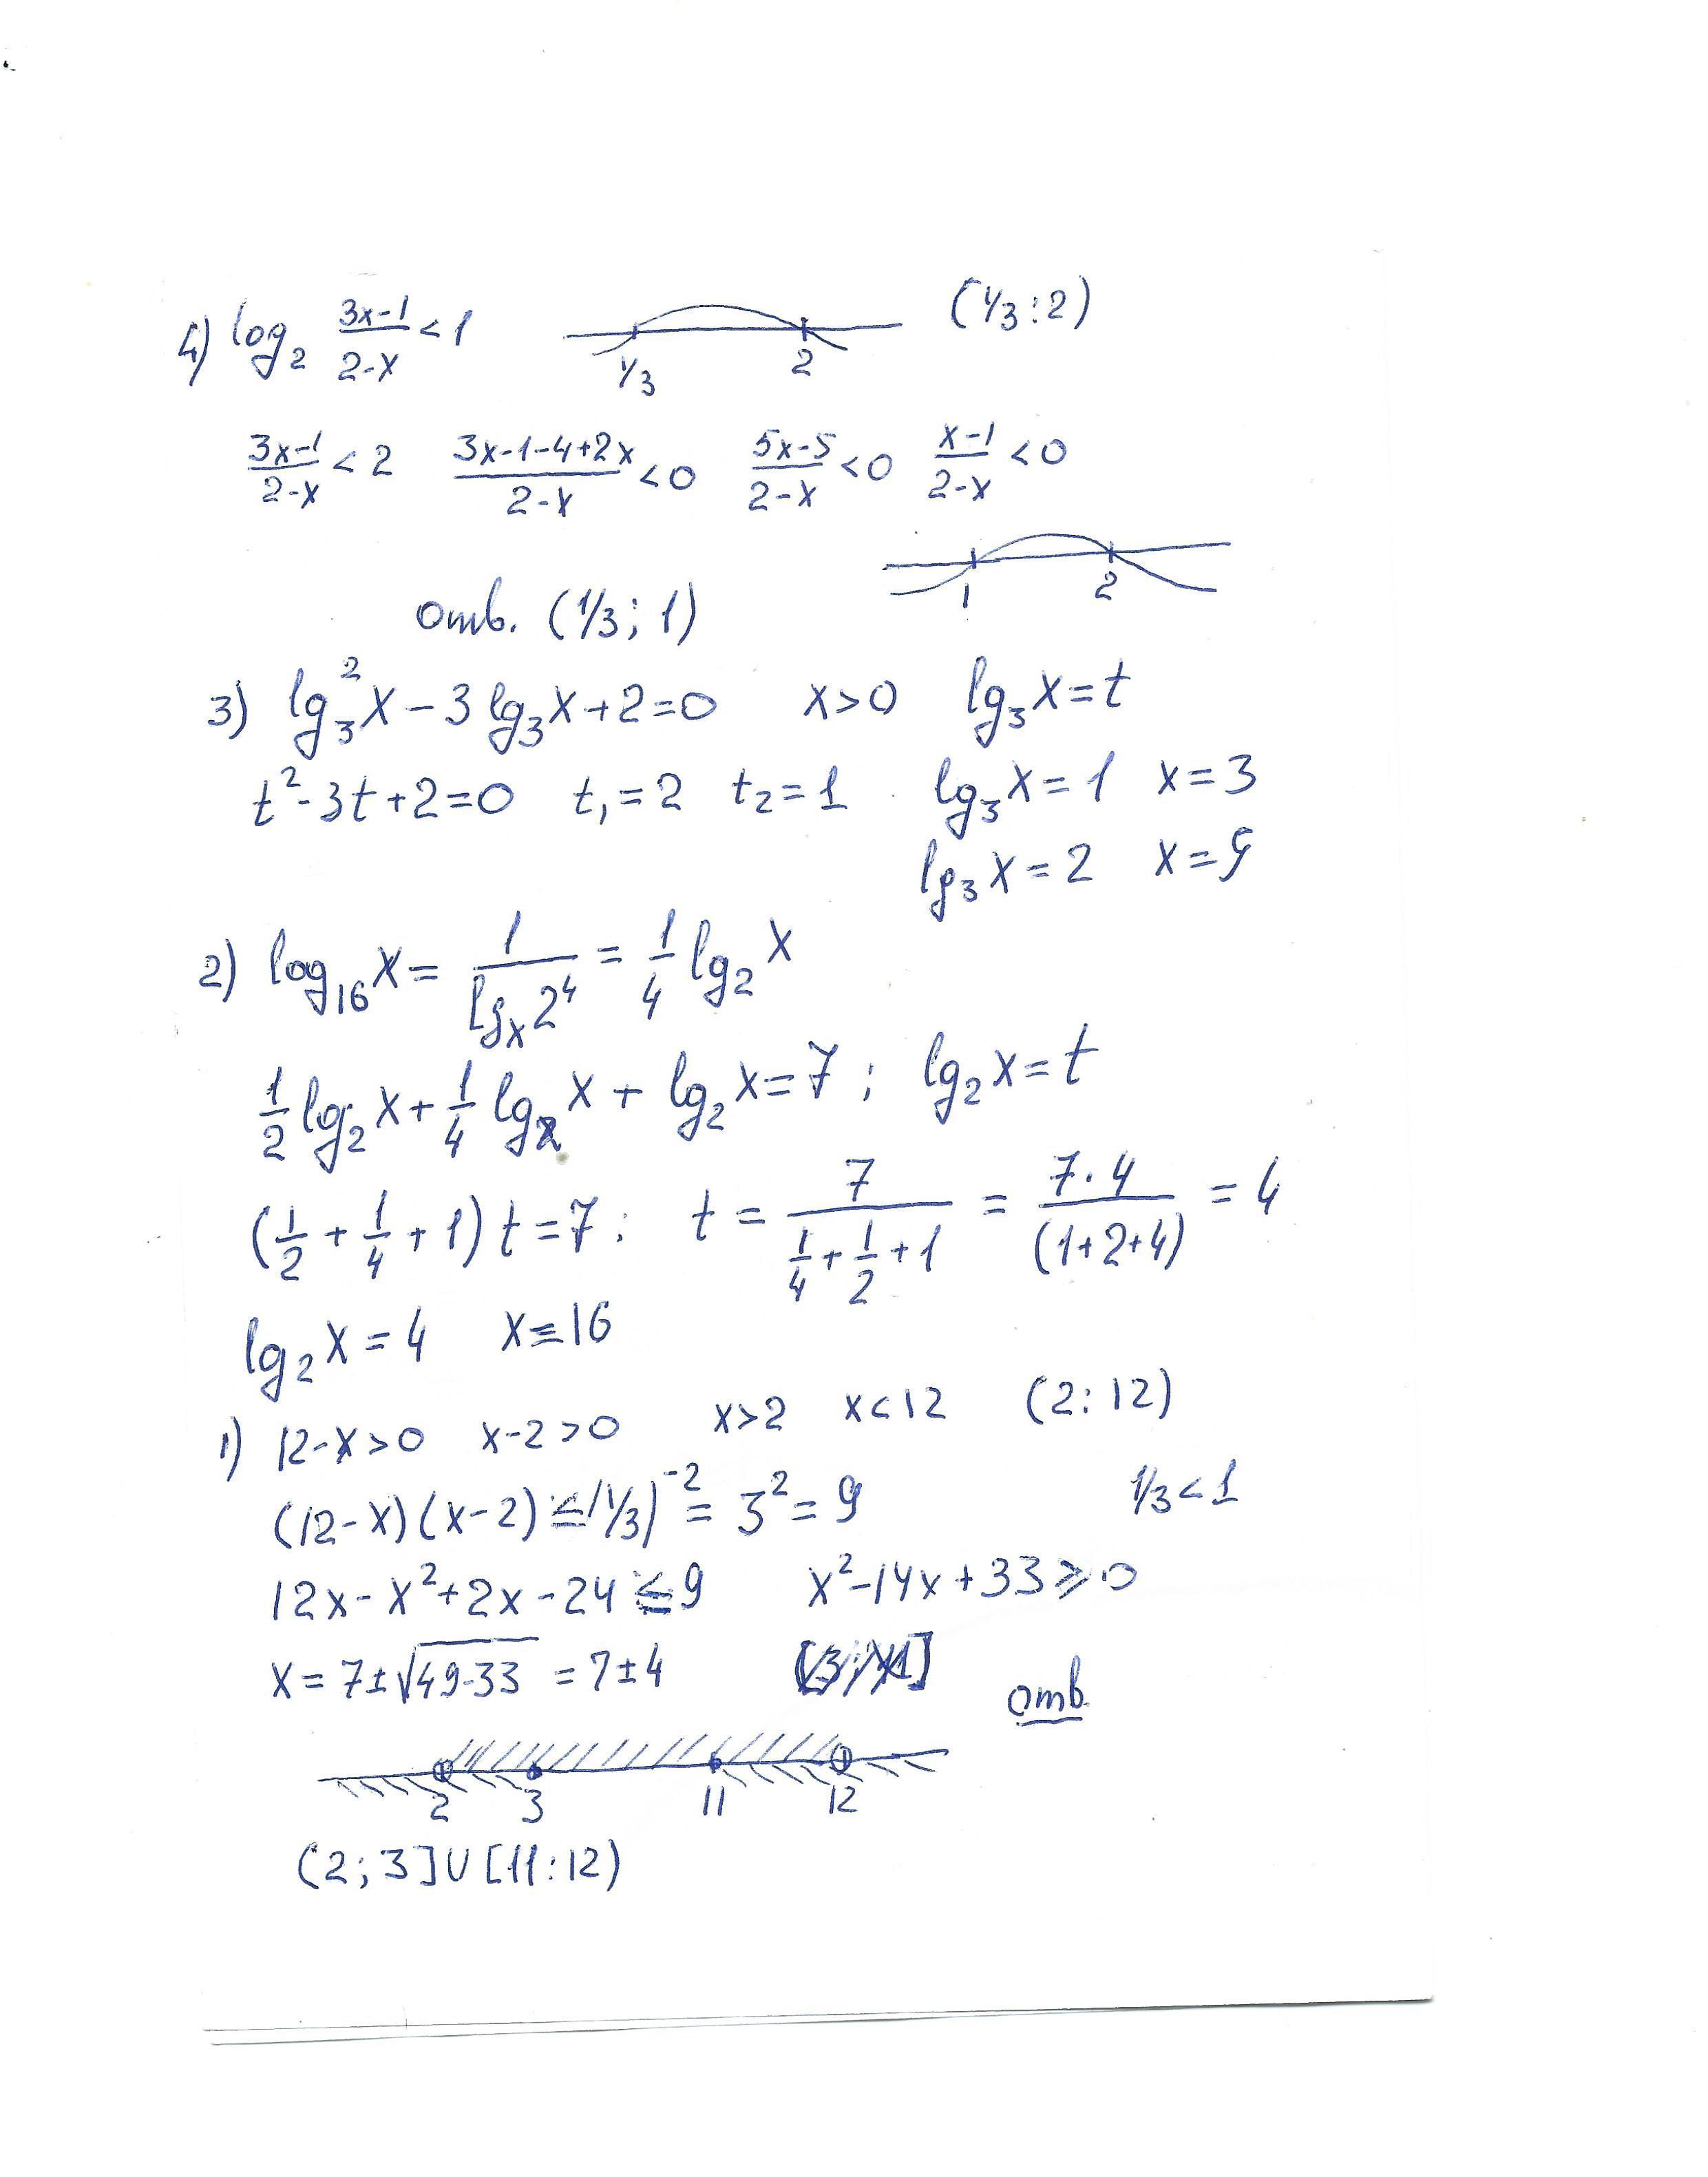 4) log₂ (3x-1)/(2-x) < 1   1/3   2   (1/3 : 2)
(3x-1)/(2-x) < 2   (3x-1-4+2x)/(2-x) < 0   (5x-5)/(2-x) < 0   (x-1)/(2-x) < 0
1   2
отв. (1/3; 1)
3) lg₃²x - 3 lg₃x + 2 = 0   x > 0   lg₃x = t
t² - 3t + 2 = 0   t₁ = 2   t₂ = 1   lg₃x = 1   x = 3
lg₃x = 2   x = 9
2) log₁₆x = 1/(lgₓ2⁴) = 1/4 lg₂x
1/2 lg₂x + 1/4 lg₂x + lg₂x = 7 ; lg₂x = t
(1/2 + 1/4 + 1) t = 7 ; t = 7/(1/4 + 1/2 + 1) = 7·4/(1+2+4) = 4
lg₂x = 4   x = 16
1) 12-x > 0   x-2 > 0   x > 2   x < 12   (2 : 12)
(12-x)(x-2) ≤ (1/3)⁻² = 3² = 9   1/3 < 1
12x - x² + 2x - 24 ≤ 9   x² - 14x + 33 ≥ 0
x = 7 ± √(49-33) = 7 ± 4   отв.
2   3   11   12
(2; 3] ∪ [11 : 12)